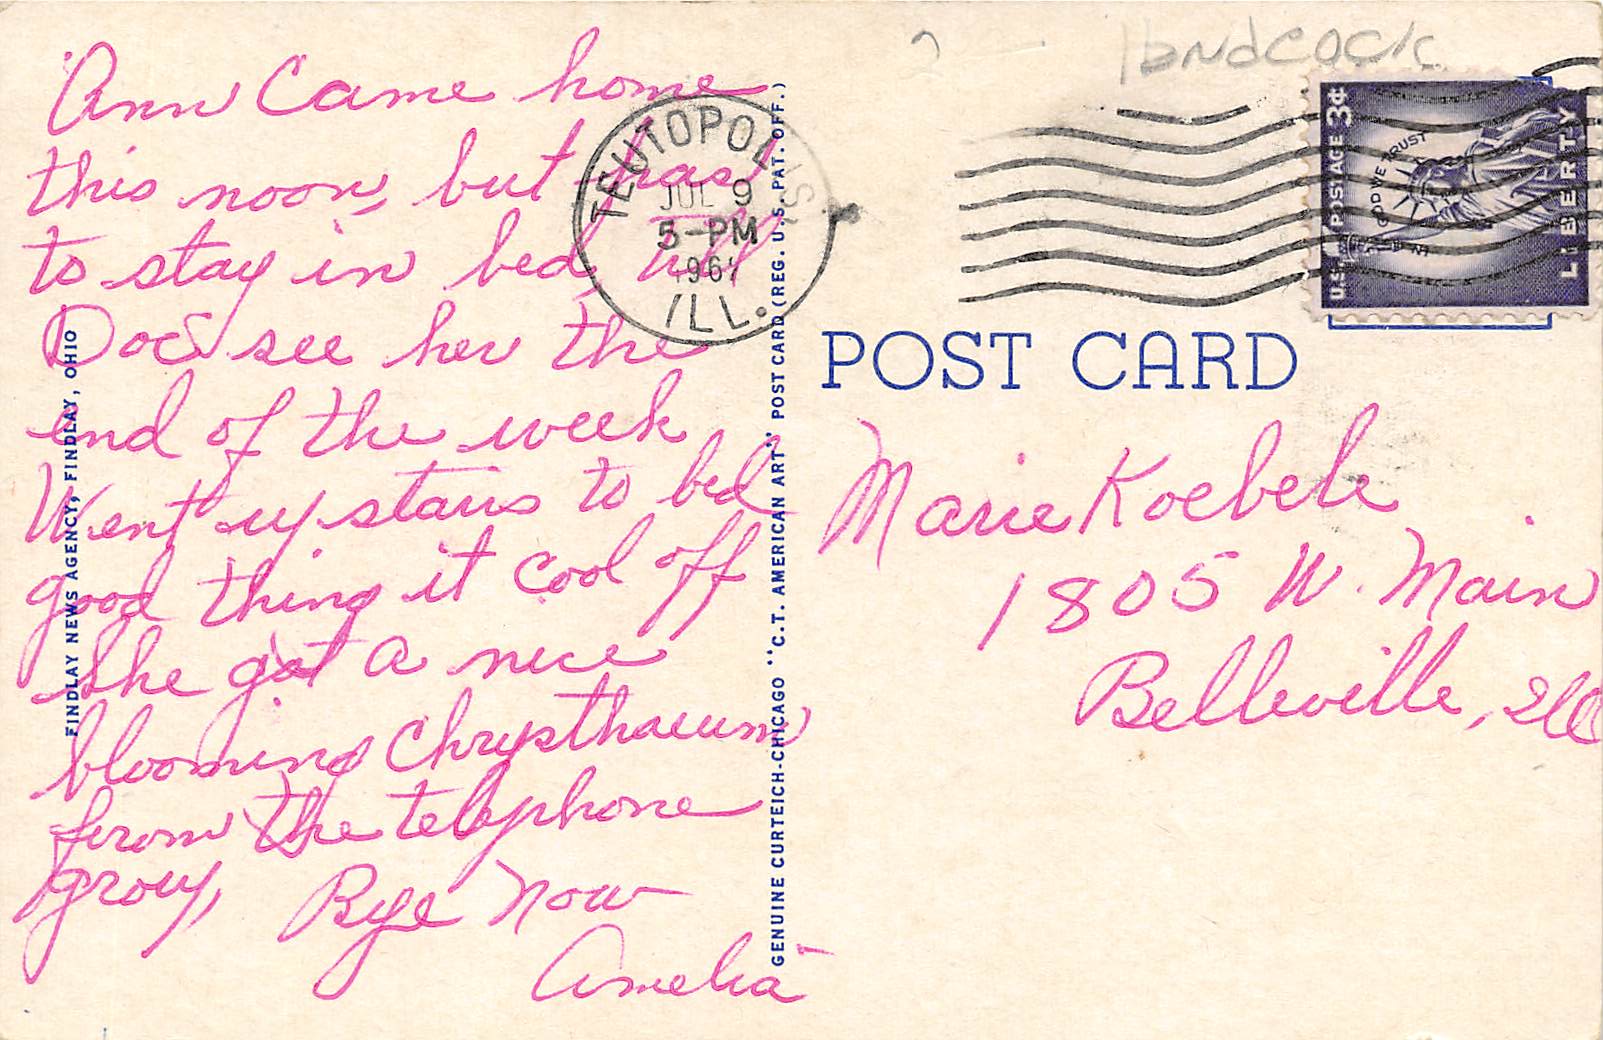 Ann Came home
this noon, but has
to stay in bed, till
Doc see her the
end of the week
Went up stairs to bed
good thing it cool off
She got a nice
blooming Chrysthaeum
from the telephone
group,
Bye Now
Amelia
FINDLAY NEWS AGENCY, FINDLAY, OHIO
GENUINE CURTEICH-CHICAGO "C.T. AMERICAN ART" POST CARD (REG. U.S. PAT. OFF.)
TEUTOPOLIS
JUL 9
5-PM
1961
ILL.
Handcock
U.S. POSTAGE 3¢
IN GOD WE TRUST
LIBERTY
POST CARD
Marie Koebele
1805 W. Main
Belleville, Ill